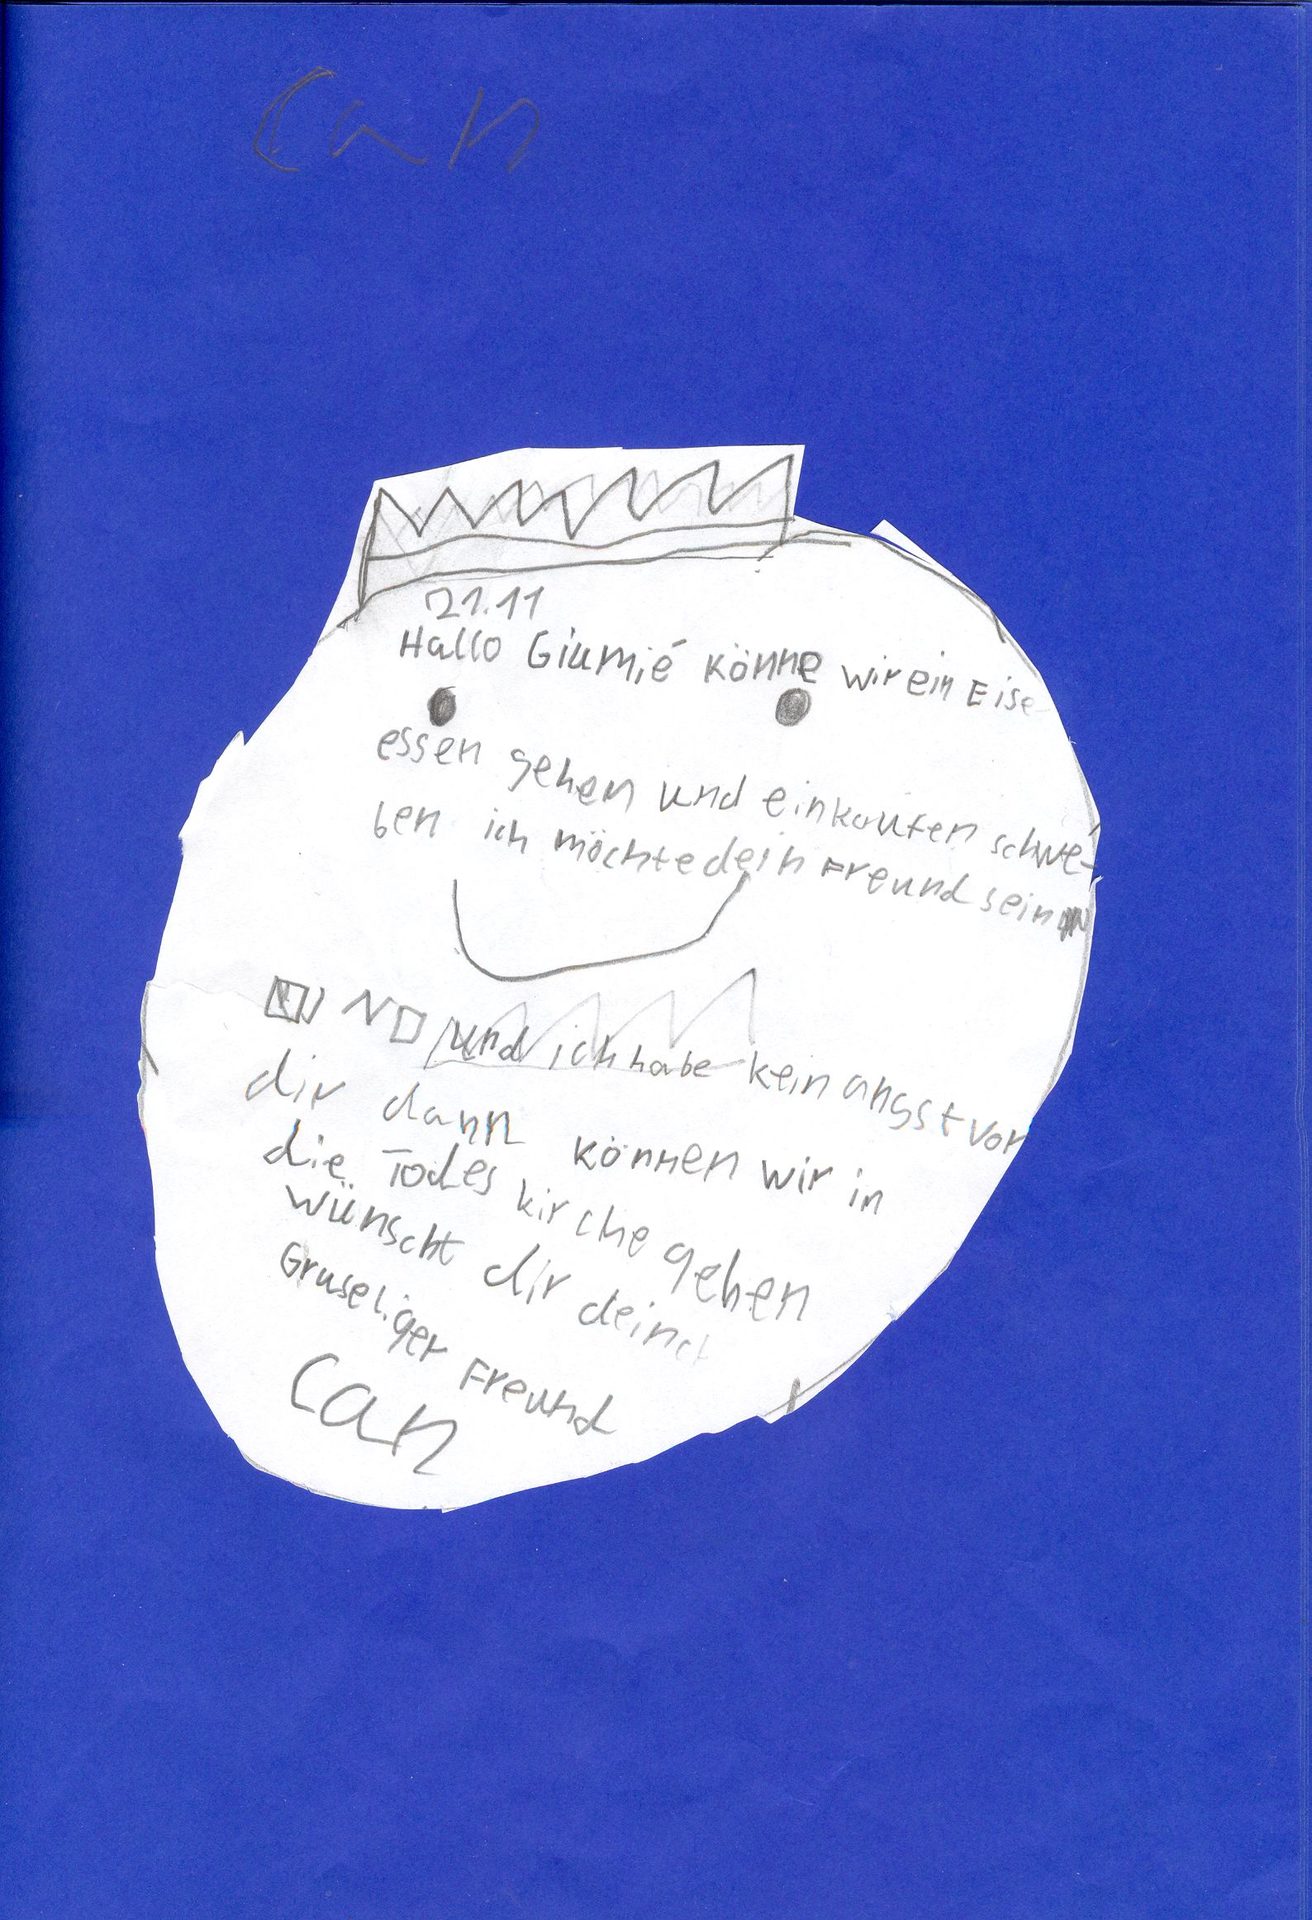 Can
21.11
Hallo Giumié könne wir ein Eise
essen gehen und einkaufen schwe-
ben ich möchte dein Freund sein
N und ich habe kein angst vor
dir dann können wir in
die Todes kirche gehen
wünscht dir dein
Gruseliger Freund
Can